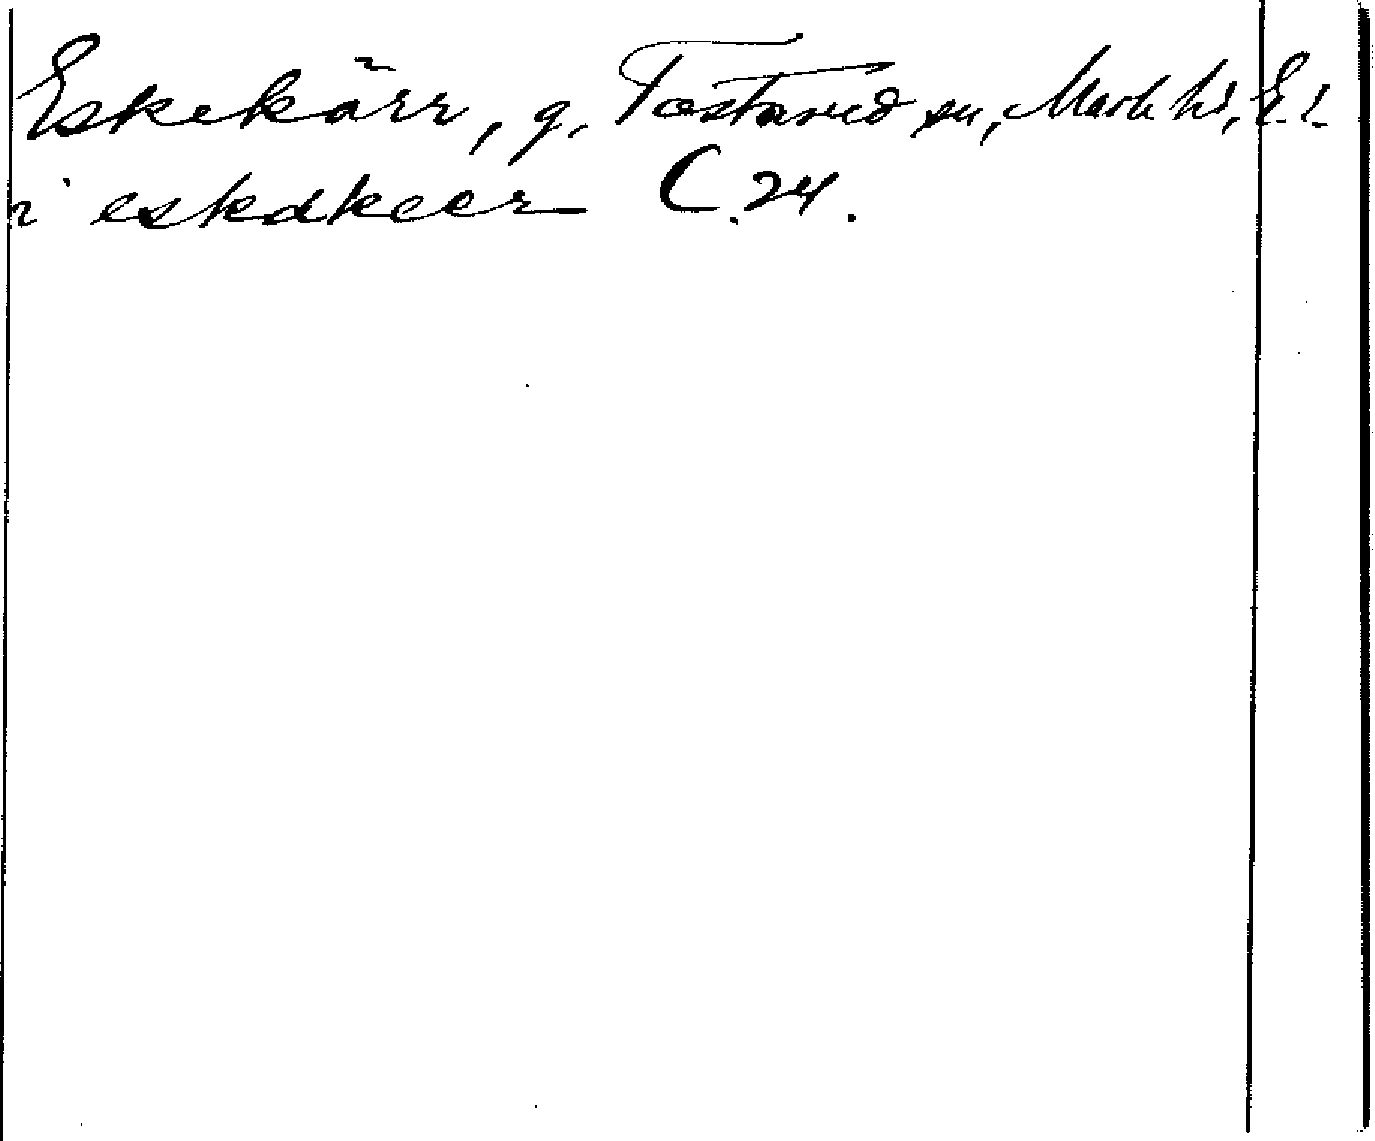 Eskekärr, g. Tostared sn, Mark hd, E. l.
i eskdkeer C. 24.